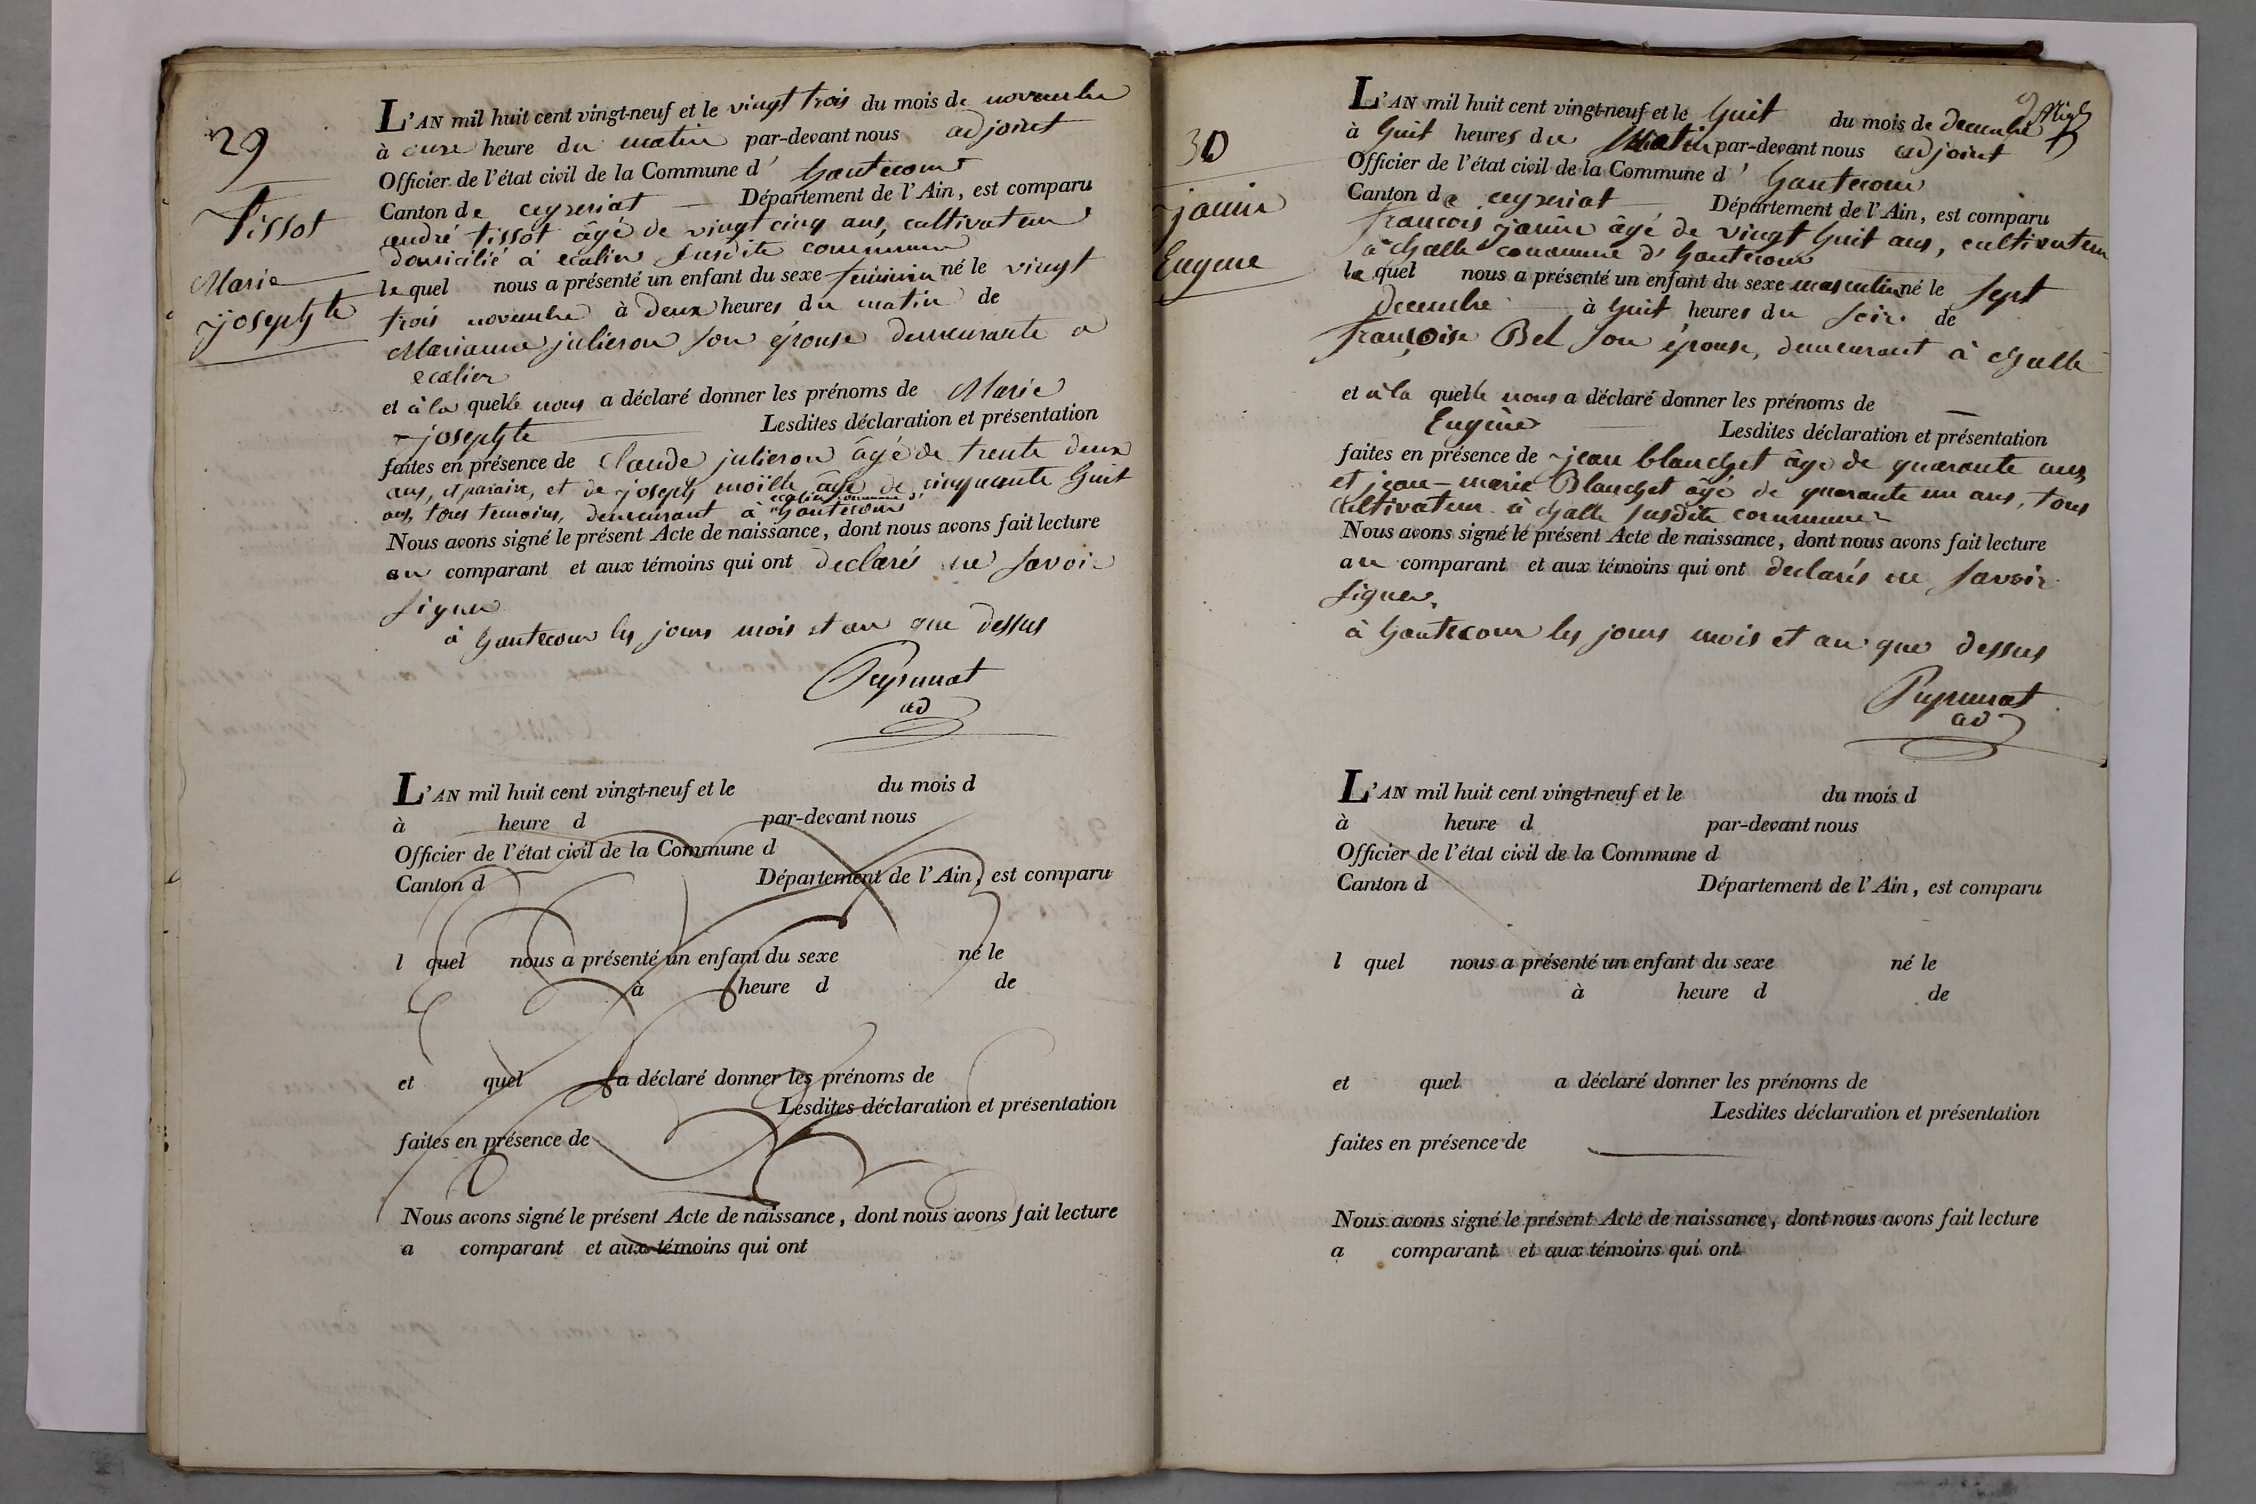 29
Tissot
Marie
josephte
L'AN mil huit cent vingt-neuf et le vingt trois du mois de novembre
à onze heure du matin par-devant nous adjoint
Officier de l'état civil de la Commune d' hautecour
Canton de ceyzeriat Département de l'Ain, est comparu
andré tissot âgé de vingt cinq ans, cultivateur
domicilié à ecalier susdite commune
lequel nous a présenté un enfant du sexe feminin né le vingt
trois novembre à deux heures du matin de
Marianne julieron son épouse demeurante a
ecalier
et à la quelle nous a déclaré donner les prénoms de Marie
josephte Lesdites déclaration et présentation
faites en présence de Claude julieron âgé de trente deux
ans, et parain, et de joseph moille âgé de cinquante huit
ans, tous temoins, demeurant à ecalier commune hautecour
Nous avons signé le présent Acte de naissance, dont nous avons fait lecture
au comparant et aux témoins qui ont declarés ne savoir
signer
à hautecour les jours mois et an que dessus
ad
L'AN mil huit cent vingt-neuf et le du mois d
à heure d par-devant nous
Officier de l'état civil de la Commune d
Canton d Département de l'Ain, est comparu
l quel nous a présenté un enfant du sexe né le
à heure d de
et quel a déclaré donner les prénoms de
Lesdites déclaration et présentation
faites en présence de
Nous avons signé le présent Acte de naissance, dont nous avons fait lecture
a comparant et aux témoins qui ont
30
janin
Eugene
L'AN mil huit cent vingt-neuf et le huit du mois de decembre
à huit heures du Matin par-devant nous adjoint
Officier de l'état civil de la Commune d' hautecour
Canton de ceyzeriat Département de l'Ain, est comparu
francois janin âgé de vingt huit ans, cultivateur
à challe commune d'hautecour
le quel nous a présenté un enfant du sexe masculin né le sept
decembre à huit heures du soir de
françoise Bel son épouse, demeurant à challe
et à la quelle nous a déclaré donner les prénoms de
Eugène Lesdites déclaration et présentation
faites en présence de jean blanchet âgé de quarante ans
et jean-marie Blanchet âgé de quarante un ans, tous
cultivateur à challe susdite commune
Nous avons signé le présent Acte de naissance, dont nous avons fait lecture
au comparant et aux témoins qui ont declarés ne savoir
signer,
à hautecour les jours mois et an que dessus
ad
L'AN mil huit cent vingt-neuf et le du mois d
à heure d par-devant nous
Officier de l'état civil de la Commune d
Canton d Département de l'Ain, est comparu
l quel nous a présenté un enfant du sexe né le
à heure d de
et quel a déclaré donner les prénoms de
Lesdites déclaration et présentation
faites en présence de
Nous avons signé le présent Acte de naissance, dont nous avons fait lecture
a comparant et aux témoins qui ont